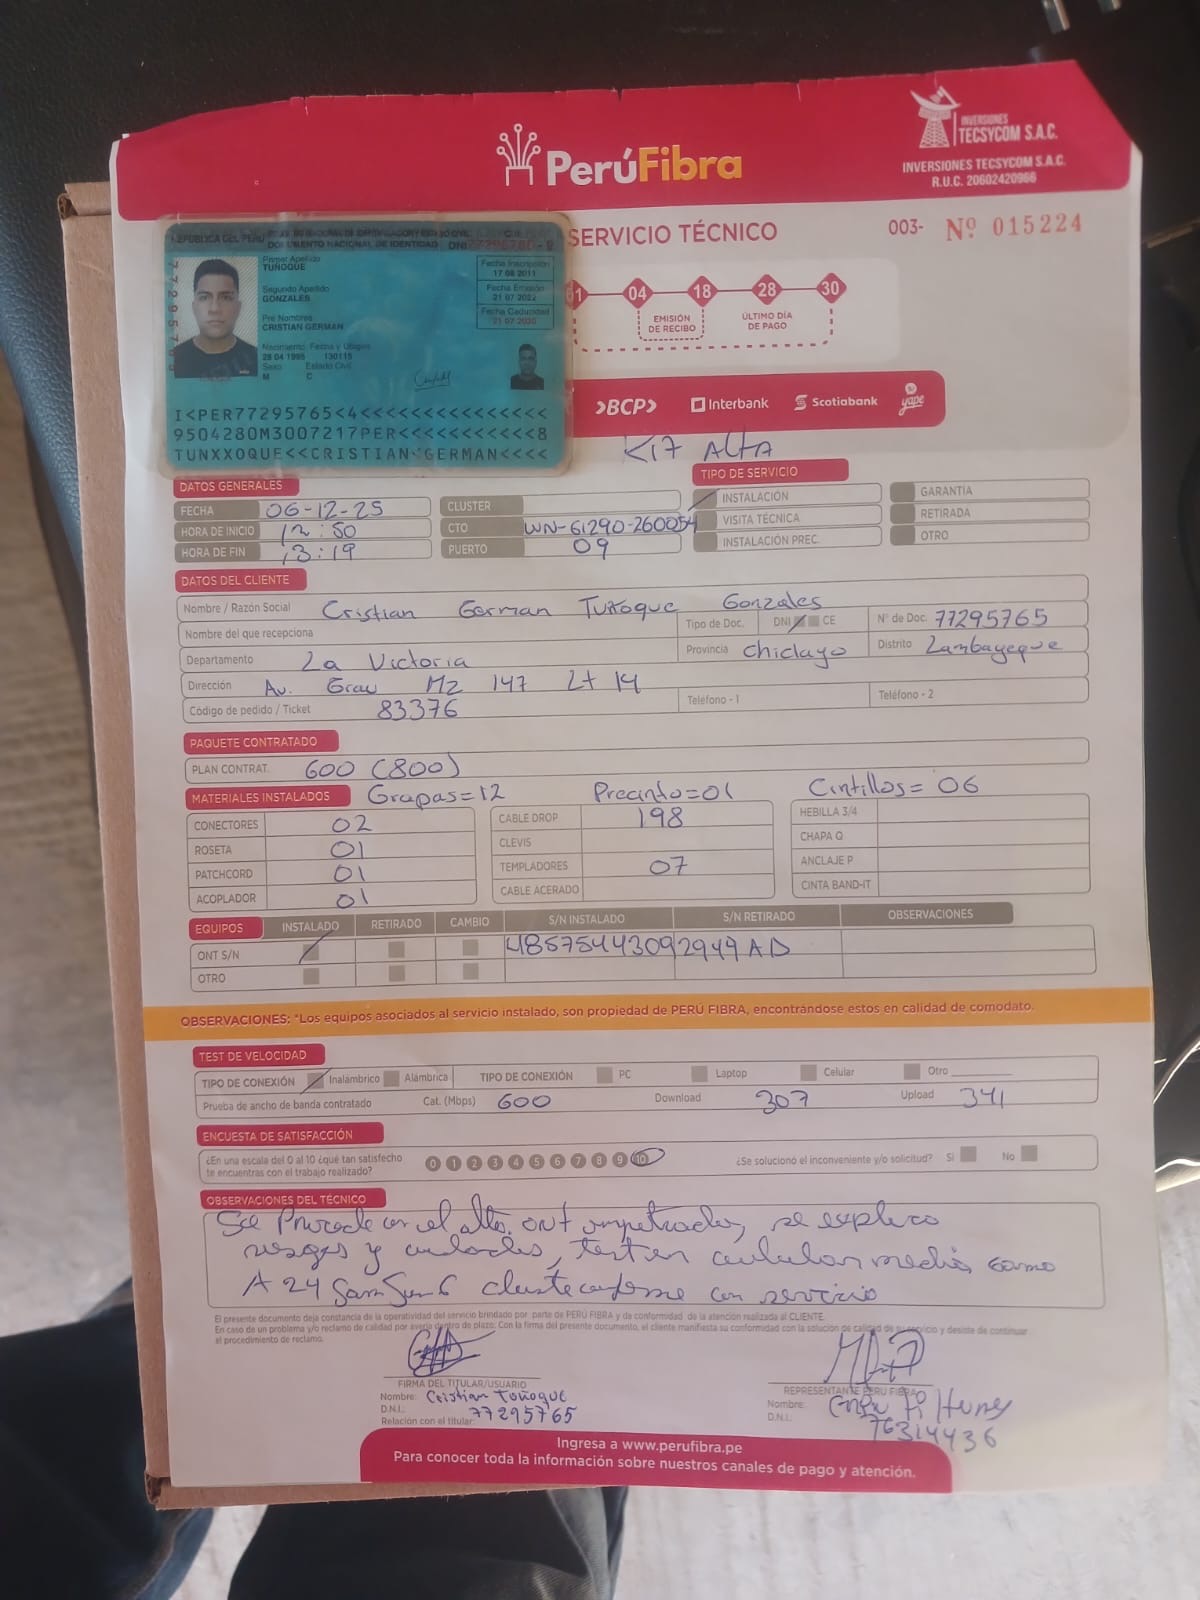 INVERSIONES
TECSYCOM S.A.C.
PerúFibra
INVERSIONES TECSYCOM S.A.C.
R.U.C. 20602420966
SERVICIO TÉCNICO
003- Nº 015224
REPUBLICA DEL PERU
DOCUMENTO NACIONAL DE IDENTIDAD DNI
Primer Apellido
TUÑOQUE
Segundo Apellido
GONZALES
Pre Nombres
CRISTIAN GERMAN
Nacimiento: Fecha y Ubigeo
28 04 1995 130115
Sexo Estado Civil
M C
Fecha Inscripción
17 08 2011
Fecha Emisión
21 07 2022
Fecha Caducidad
21 07 2030
I<PER77295765<4<<<<<<<<<<<<<<<
9504280M3007217PER<<<<<<<<<<<8
TUNXXOQUE<<CRISTIAN<GERMAN<<<<
01 04 18 28 30
EMISIÓN DE RECIBO
ÚLTIMO DÍA DE PAGO
>BCP> Interbank Scotiabank yape
KIT ALTA
DATOS GENERALES
TIPO DE SERVICIO
FECHA 06-12-25
CLUSTER
INSTALACIÓN
GARANTÍA
HORA DE INICIO 12:50
CTO WN-61290-260054
VISITA TÉCNICA
RETIRADA
HORA DE FIN 13:19
PUERTO 09
INSTALACIÓN PREC.
OTRO
DATOS DEL CLIENTE
Nombre / Razón Social Cristian German Tuñoque Gonzales
Nombre del que recepciona
Tipo de Doc. DNI CE
N° de Doc. 77295765
Departamento La Victoria
Provincia Chiclayo
Distrito Lambayeque
Dirección Av. Grau Mz 147 Lt 14
Código de pedido / Ticket 83376
Teléfono - 1
Teléfono - 2
PAQUETE CONTRATADO
PLAN CONTRAT. 600 (800)
MATERIALES INSTALADOS Grapas=12 Precinto=01 Cintillos= 06
CONECTORES 02
CABLE DROP 198
HEBILLA 3/4
ROSETA 01
CLEVIS
CHAPA Q
PATCHCORD 01
TEMPLADORES 07
ANCLAJE P
ACOPLADOR 01
CABLE ACERADO
CINTA BAND-IT
EQUIPOS INSTALADO RETIRADO CAMBIO S/N INSTALADO S/N RETIRADO OBSERVACIONES
ONT S/N 48575443092949AD
OTRO
OBSERVACIONES: "Los equipos asociados al servicio instalado, son propiedad de PERÚ FIBRA, encontrándose estos en calidad de comodato.
TEST DE VELOCIDAD
TIPO DE CONEXIÓN Inalámbrico Alámbrica TIPO DE CONEXIÓN PC Laptop Celular Otro
Prueba de ancho de banda contratado Cat. (Mbps) 600 Download 307 Upload 341
ENCUESTA DE SATISFACCIÓN
¿En una escala del 0 al 10 ¿qué tan satisfecho
te encuentras con el trabajo realizado?
0 1 2 3 4 5 6 7 8 9 10
¿Se solucionó el inconveniente y/o solicitud? Si No
OBSERVACIONES DEL TÉCNICO
Se Procede con el alta. ONT, se explico
y, test en celular media Gama
A24 SamSung cliente conforme con servicio
El presente documento deja constancia de la operatividad del servicio brindado por parte de PERÚ FIBRA y de conformidad de la atención realizada al CLIENTE.
En caso de un problema y/o reclamo de calidad por avería dentro de plazo: Con la firma del presente documento, el cliente manifiesta su conformidad con la solución de calidad de su servicio y desiste de continuar
el procedimiento de reclamo.
FIRMA DEL TITULAR/USUARIO
REPRESENTANTE PERÚ FIBRA
Nombre: Cristian Tuñoque
Nombre:
D.N.I.: 77295765
D.N.I.: 76314436
Relación con el titular:
Ingresa a www.perufibra.pe
Para conocer toda la información sobre nuestros canales de pago y atención.